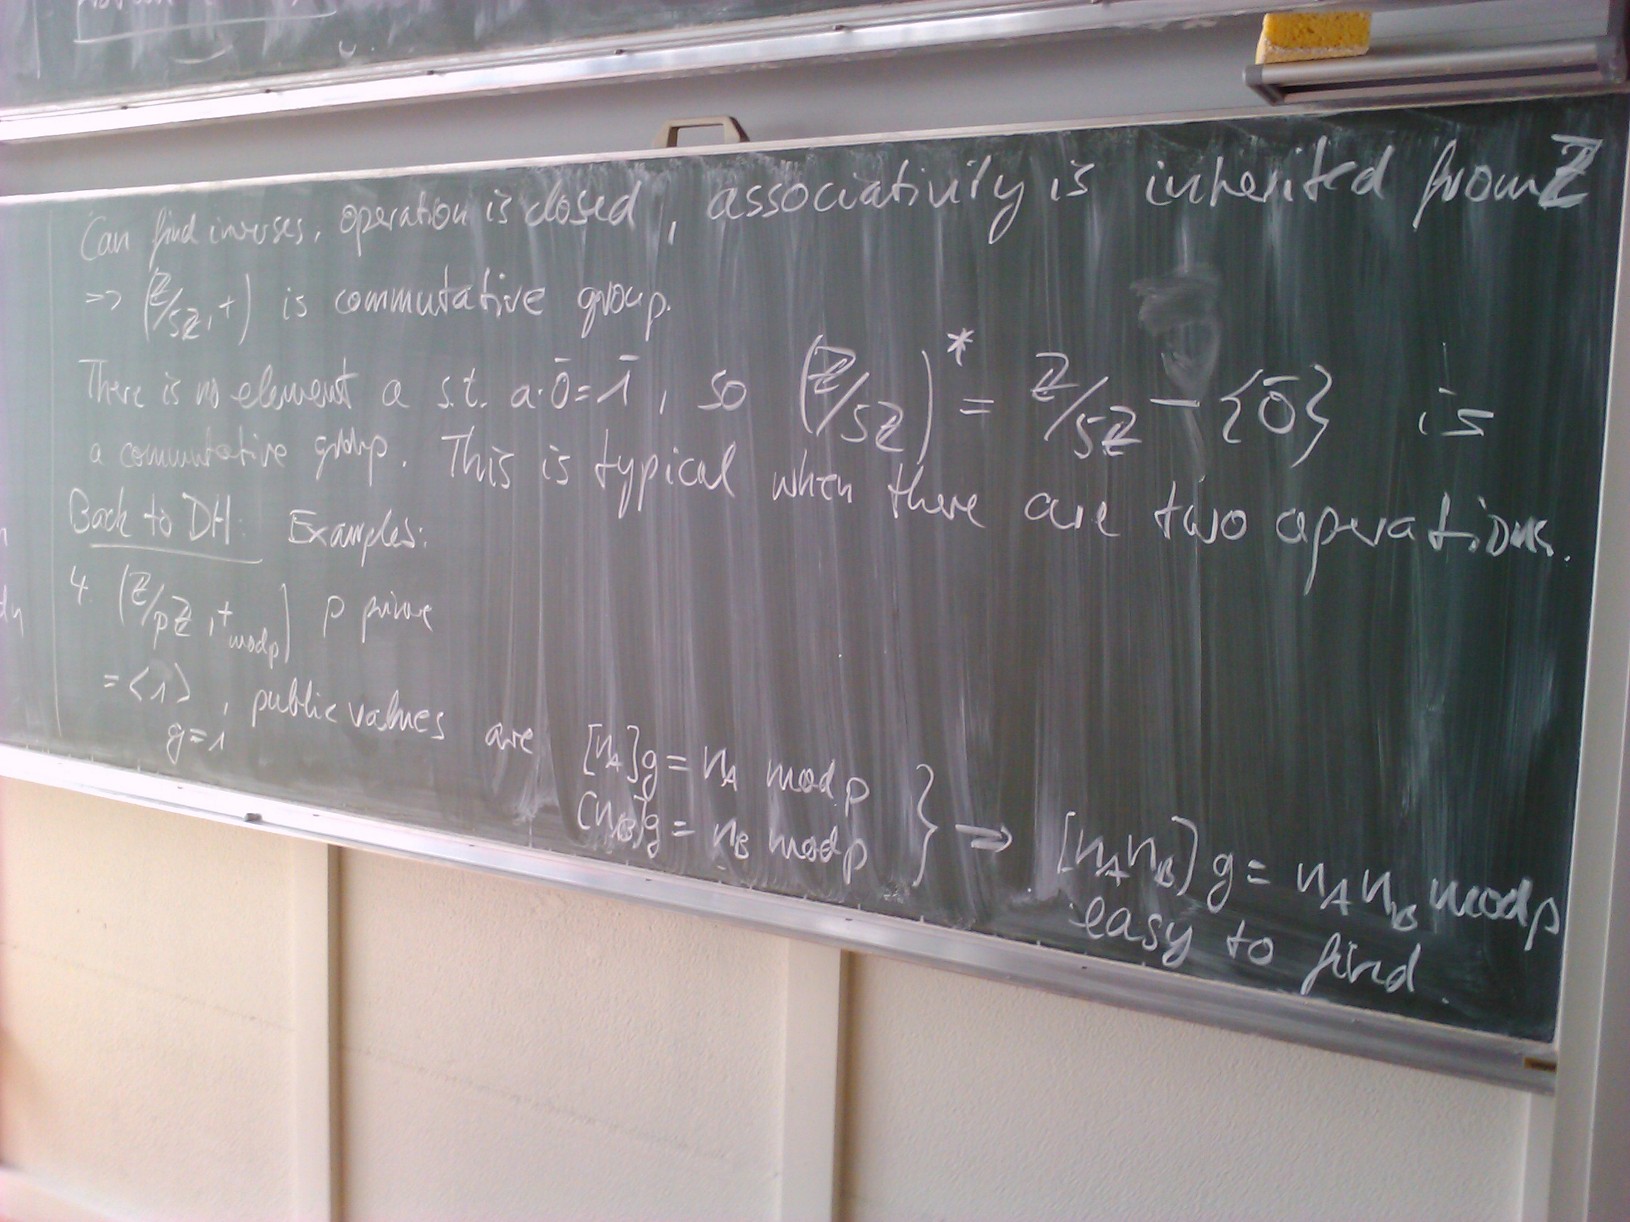 Can find inverses, operation is closed, associativity is inherited from ℤ
=> (ℤ/5ℤ, +) is commutative group.
There is no element a s.t. a·0̄ = 1̄, so (ℤ/5ℤ)* = ℤ/5ℤ - {0̄} is
a commutative group. This is typical when there are two operations.
Back to DH: Examples:
4. (ℤ/pℤ, + mod p) p prime
= <1>, public values are [n_A]g = n_A mod p
g = 1
[n_B]g = n_B mod p } => [n_A n_B]g = n_A n_B mod p
easy to find.